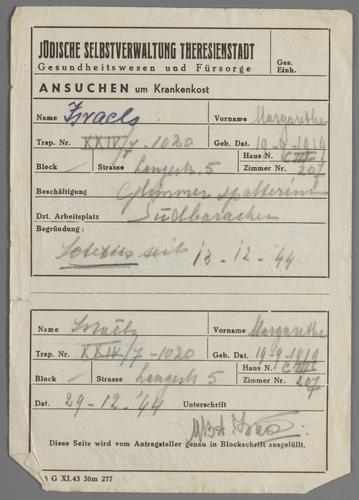 JÜDISCHE SELBSTVERWALTUNG THERESIENSTADT
Gesundheitswesen und Fürsorge
Ges. Einh.
ANSUCHEN um Krankenkost
Name Israels Vorname Margarethe
Trsp. Nr. XXIV/7-1020 Geb. Dat. 19-9-1919
Haus N. CIII
Block / Strasse Langestr. 5 Zimmer Nr. 207
Beschäftigung Glimmer
Dzt. Arbeitsplatz Südbaracken
Begründung:
Icterus seit 13-12-'44
Name Israels Vorname Margarethe
Trsp. Nr. XXIV/7-1020 Geb. Dat. 19-9-1919
Haus N. CIII
Block Strasse Langestr. 5 Zimmer Nr. 207
Dat. 29-12-'44 Unterschrift
Diese Seite wird vom Antragsteller genau in Blockschrift ausgefüllt.
G XI.43 30m 277